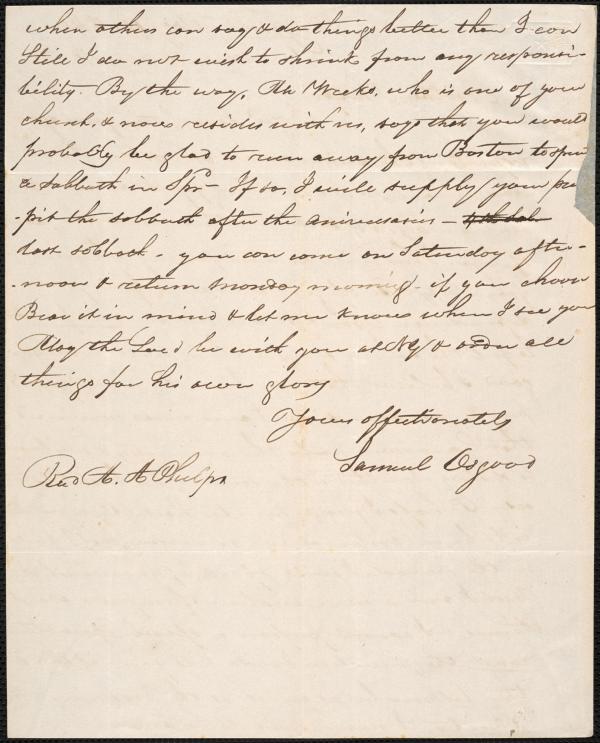 when others can say & do things better than I can
Still I do not wish to shrink from any responsi-
bility. By the way, Mr Weeks, who is one of your
church, & now resides with us, says that you would
probably be glad to run away from Boston to spen
a sabbath in Spr- If so, I will supply your pul
-pit the sabbath after the aniversaries -
last sabbath - you can come on Saturday after-
-noon & return monday morning - if you choose
Bear it in mind & let me know when I see you
May the Lord be with you at NY & order all
things for his own glory
Yours affectionately
Samuel Osgood
Rev A. A Phelps